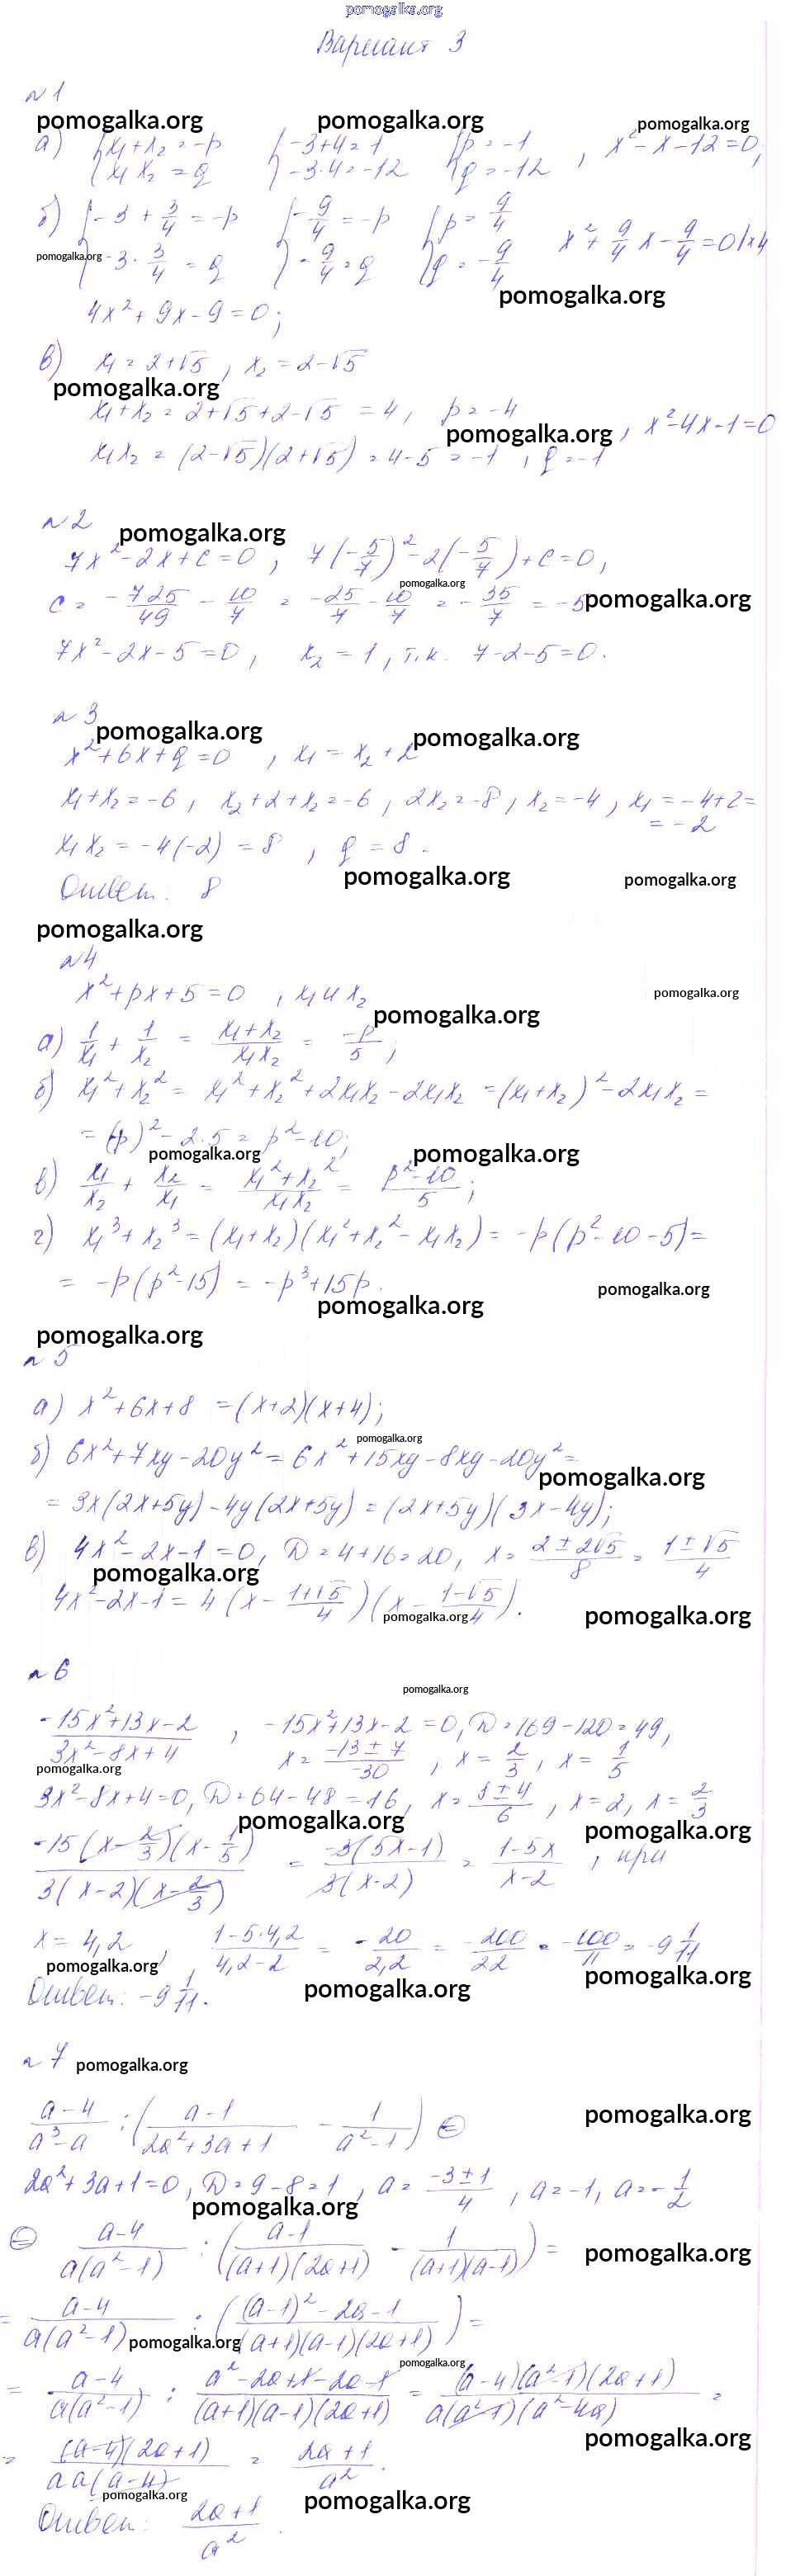 pomogalka.org
Вариант 3
№1
pomogalka.org pomogalka.org pomogalka.org
а) { x₁+x₂=-p { -3+4=1 { p=-1 , x²-x-12=0;
{ x₁x₂=q { -3·4=-12 { q=-12
б) { -3+3/4=-p { -9/4=-p { p=9/4 x²+9/4x-9/4=0|×4
pomogalka.org { -3·3/4=q { -9/4=q { q=-9/4
pomogalka.org
4x²+9x-9=0;
в) x₁=2+√5, x₂=2-√5
pomogalka.org
x₁+x₂=2+√5+2-√5=4, p=-4
pomogalka.org , x²-4x-1=0
x₁x₂=(2-√5)(2+√5)=4-5=-1, q=-1
№2
pomogalka.org
7x²-2x+c=0, 7(-5/7)²-2(-5/7)+c=0,
pomogalka.org
c=-7·25/49-10/7=-25/7-10/7=-35/7=-5 pomogalka.org
7x²-2x-5=0, x₂=1, т.к. 7-2-5=0.
№3
pomogalka.org pomogalka.org
x²+6x+q=0, x₁=x₂+2
x₁+x₂=-6, x₂+2+x₂=-6, 2x₂=-8, x₂=-4, x₁=-4+2=
=-2
x₁x₂=-4(-2)=8, q=8.
pomogalka.org pomogalka.org
Ответ: 8
pomogalka.org
№4
x²+px+5=0, x₁ и x₂
pomogalka.org
pomogalka.org
а) 1/x₁+1/x₂=(x₁+x₂)/(x₁x₂)=-p/5;
б) x₁²+x₂²=x₁²+x₂²+2x₁x₂-2x₁x₂=(x₁+x₂)²-2x₁x₂=
=(-p)²-2·5=p²-10;
pomogalka.org pomogalka.org
в) x₁/x₂+x₂/x₁=(x₁²+x₂²)/(x₁x₂)=(p²-10)/5;
г) x₁³+x₂³=(x₁+x₂)(x₁²+x₂²-x₁x₂)=-p(p²-10-5)=
=-p(p²-15)=-p³+15p.
pomogalka.org
pomogalka.org
pomogalka.org
№5
а) x²+6x+8=(x+2)(x+4);
pomogalka.org
б) 6x²+7xy-20y²=6x²+15xy-8xy-20y²=
pomogalka.org
=3x(2x+5y)-4y(2x+5y)=(2x+5y)(3x-4y);
в) 4x²-2x-1=0, D=4+16=20, x=(2±2√5)/8=(1±√5)/4
pomogalka.org
4x²-2x-1=4(x-(1+√5)/4)(x-(1-√5)/4).
pomogalka.org pomogalka.org
№6
pomogalka.org
(-15x²+13x-2)/(3x²-8x+4), -15x²+13x-2=0, D=169-120=49,
pomogalka.org
x=(-13±7)/-30, x=2/3, x=1/5
3x²-8x+4=0, D=64-48=16, x=(8±4)/6, x=2, x=2/3
pomogalka.org pomogalka.org
-15(x-2/3)(x-1/5)/3(x-2)(x-2/3)=-3(5x-1)/3(x-2)=(1-5x)/(x-2), при
x=4,2, (1-5·4,2)/(4,2-2)=-20/2,2=-200/22=-100/11=-9 1/11
pomogalka.org pomogalka.org
Ответ: -9 1/11. pomogalka.org
№7 pomogalka.org
(a-4)/(a³-a):((a-1)/(2a²+3a+1)-1/(a²-1)) =
pomogalka.org
2a²+3a+1=0, D=9-8=1, a=(-3±1)/4, a=-1, a=-1/2
pomogalka.org
= (a-4)/a(a²-1):((a-1)/(a+1)(2a+1)-1/(a+1)(a-1))=
pomogalka.org
=(a-4)/a(a²-1):(((a-1)²-2a-1)/(a+1)(a-1)(2a+1))=
pomogalka.org
pomogalka.org
=(a-4)/a(a²-1):(a²-2a+1-2a-1)/(a+1)(a-1)(2a+1)=(a-4)(a²-1)(2a+1)/a(a²-1)(a²-4a)=
pomogalka.org
=(a-4)(2a+1)/aa(a-4)=(2a+1)/a².
pomogalka.org pomogalka.org
Ответ: (2a+1)/a².